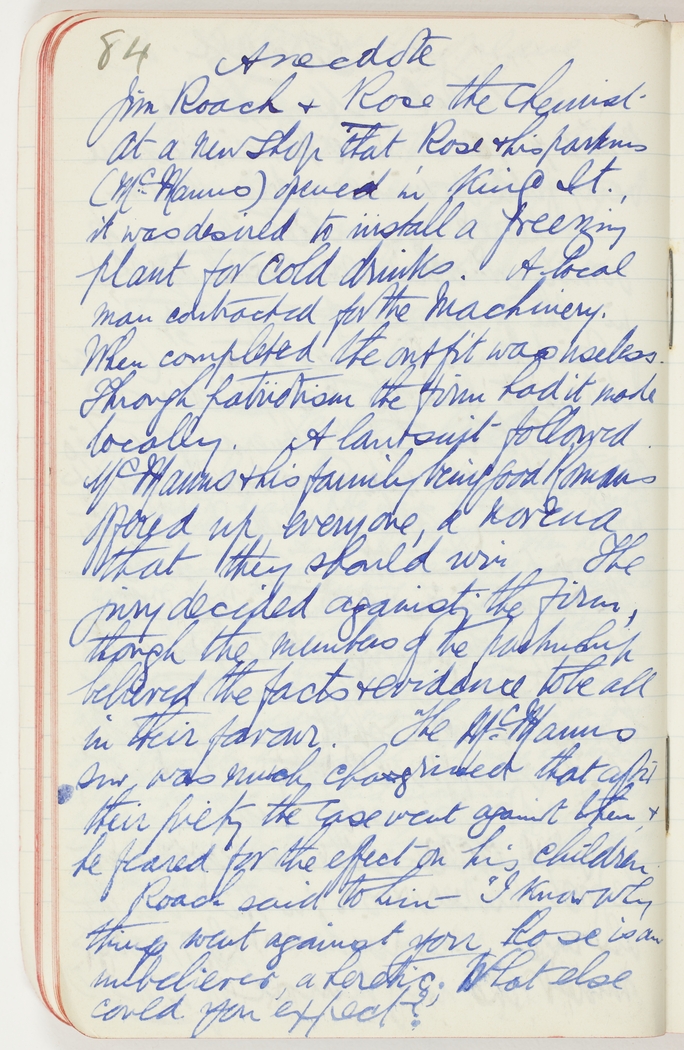 84
Anecdote
Jim Roach & Rose the Chemist.
At a new shop that Rose & his partners
(McManus) opened in King St.,
it was desired to install a freezing
plant for cold drinks. A local
man contracted for the machinery.
When completed the outfit was useless.
Through patriotism the firm had it made
locally. A lawsuit followed.
McManus & his family being good Romans
offered up, everyone, a novena
that they should win The
jury decided against the firm,
though the members of the partnership
believed the facts & evidence to be all
in their favour. The McManus
was much chagrined that after
their piety the case went against them, &
he feared for the effect on his children.
Roach said to him - "I know why
things went against you, Rose is an
unbeliever, a heretic; What else
could you expect?